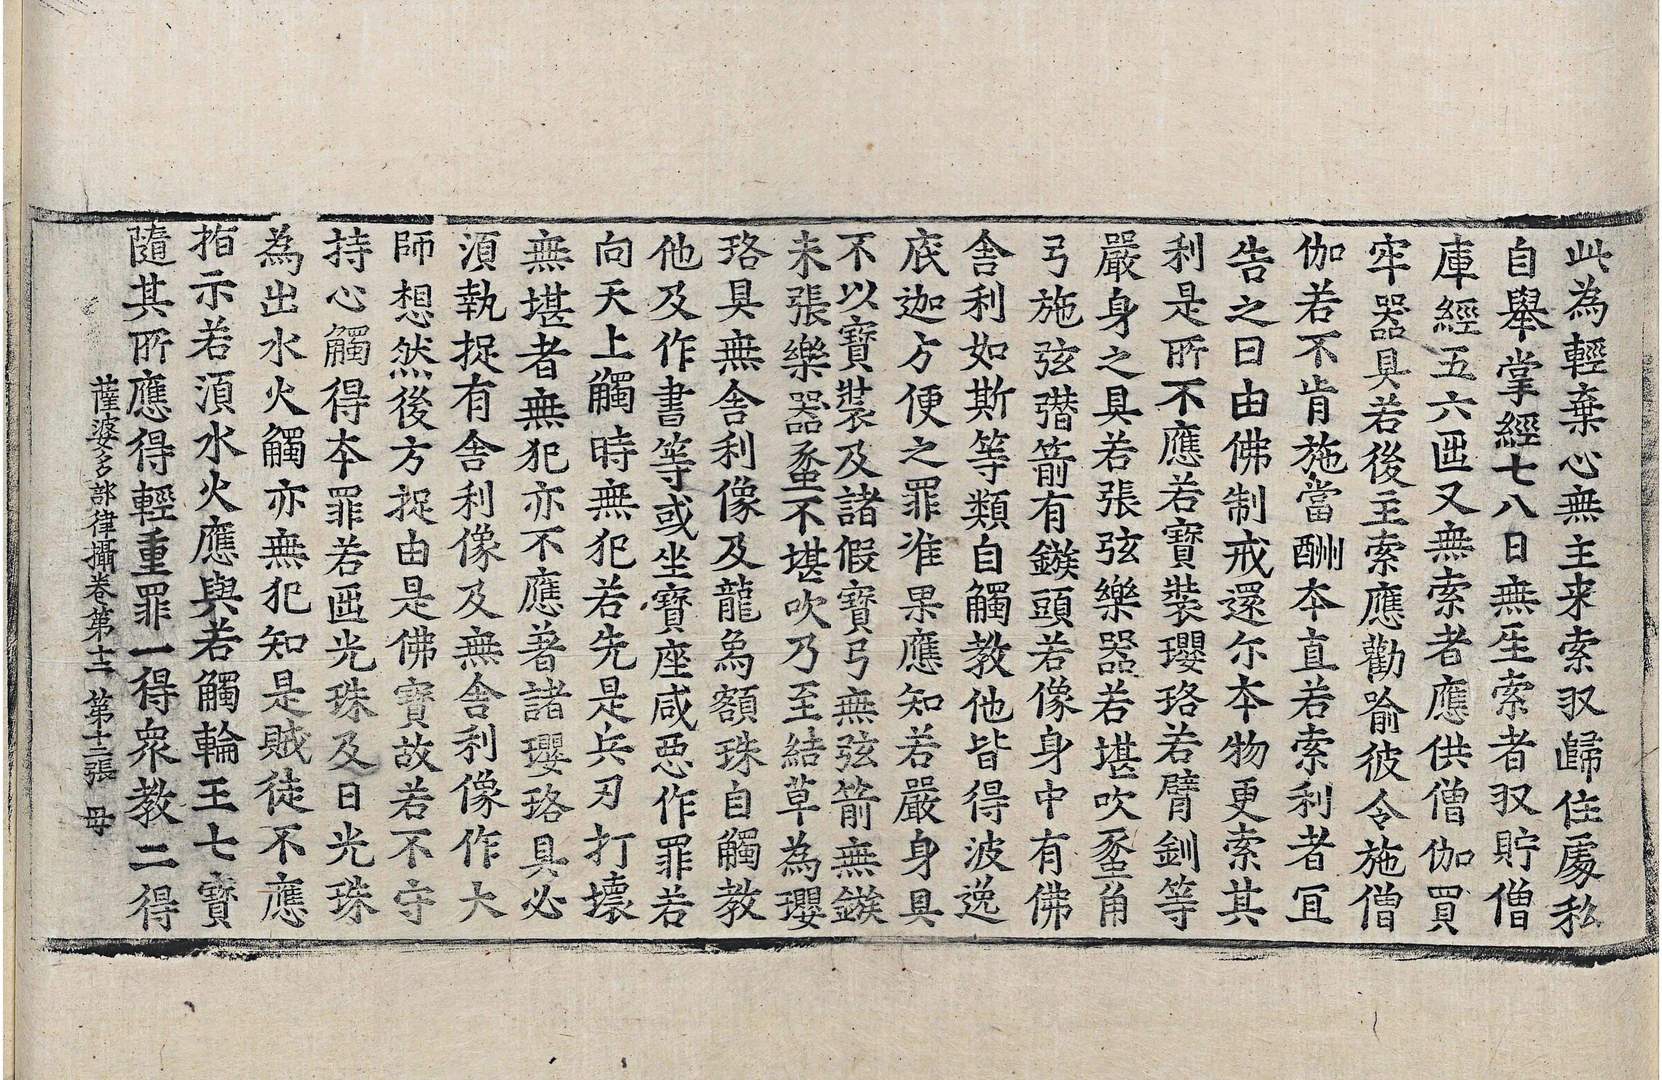 此為輕棄心無主来索収歸住處私
自舉掌經七八日無主索者収貯僧
庫經五六𠥱又無索者應供僧伽買
牢器具若後主索應勸喻彼令施僧
伽若不肯施當酬本直若索利者冝
告之曰由佛制戒還尓本物更索其
利是所不應若寶裝瓔珞若臂釧等
嚴身之具若張弦樂器若堪吹𧎥角
弓施弦彄箭有鏃頭若像身中有佛
舎利如斯等類自觸教他皆得波逸
底迦方便之罪准果應知若嚴身具
不以寶裝及諸假寶弓無弦箭無鏃
未張樂器𧎥不堪吹乃至結草為瓔
珞具無舎利像及龍鳥額珠自觸教
他及作書等或坐寶座咸惡作罪若
向天上觸時無犯若先是兵刃打壊
無堪者無犯亦不應著諸瓔珞具必
湏執捉有舎利像及無舎利像作大
師想然後方捉由是佛寶故若不守
持心觸得本罪若𠥱光珠及日光珠
為出水火觸亦無犯知是賊徒不應
指示若湏水火應與若觸輪王七寶
隨其所應得輕重罪一得衆教二得
薩婆多部律攝卷第十二 第十二張 母